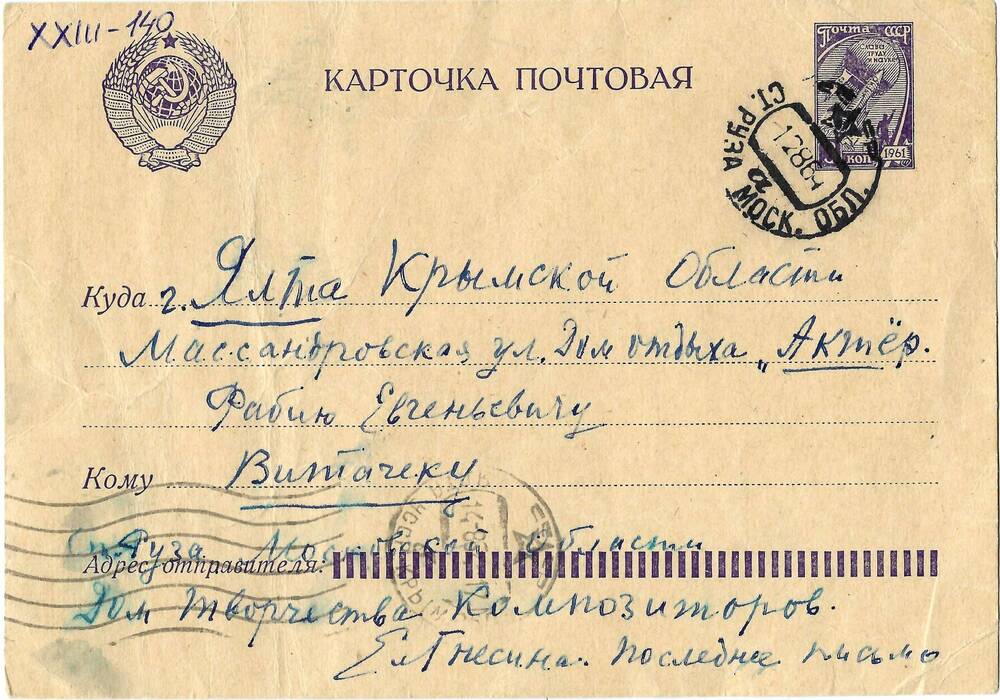 XXIII-140
КАРТОЧКА ПОЧТОВАЯ
Почта СССР
1961
СТ. РУЗА МОСК. ОБЛ.
12864
а
Куда г. Ялта Крымской Области
Массандровская ул. Дом отдыха „Актёр.
Фабию Евгеньевичу
Кому Витачеку
ст. Руза Московской Области
Адрес отправителя:
Дом Творчества Композиторов.
Ел Гнесина. последнее письмо